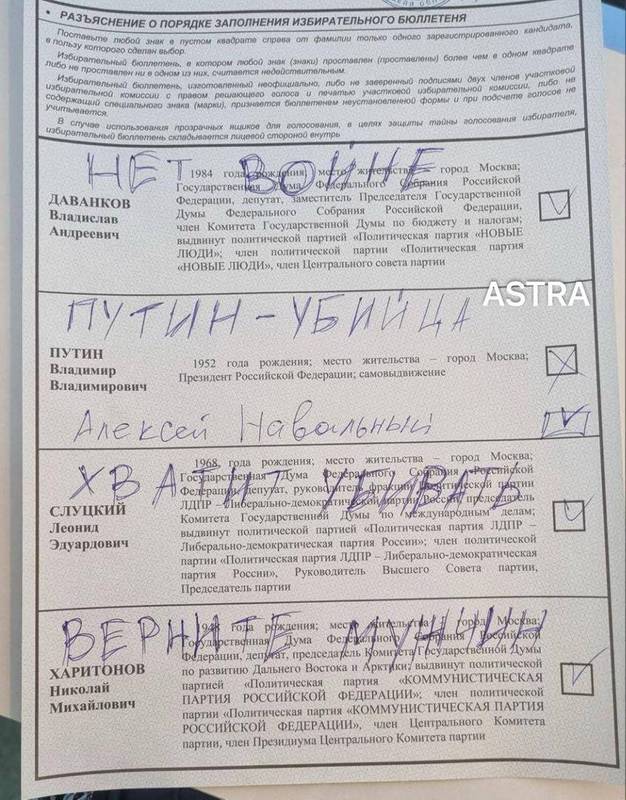 • РАЗЪЯСНЕНИЕ О ПОРЯДКЕ ЗАПОЛНЕНИЯ ИЗБИРАТЕЛЬНОГО БЮЛЛЕТЕНЯ
Поставьте любой знак в пустом квадрате справа от фамилии только одного зарегистрированного кандидата,
в пользу которого сделан выбор.
Избирательный бюллетень, в котором любой знак (знаки) проставлен (проставлены) более чем в одном квадрате
либо не проставлен ни в одном из них, считается недействительным.
Избирательный бюллетень, изготовленный неофициально, либо не заверенный подписями двух членов участковой
избирательной комиссии с правом решающего голоса и печатью участковой избирательной комиссии, либо не
содержащий специального знака (марки), признается бюллетенем неустановленной формы и при подсчете голосов не
учитывается.
В случае использования прозрачных ящиков для голосования, в целях защиты тайны голосования избирателя,
избирательный бюллетень складывается лицевой стороной внутрь
НЕТ ВОЙНЕ
ДАВАНКОВ
Владислав
Андреевич
1984 года рождения; место жительства – город Москва;
Государственная Дума Федерального Собрания Российской
Федерации, депутат, заместитель Председателя Государственной
Думы Федерального Собрания Российской Федерации,
член Комитета Государственной Думы по бюджету и налогам;
выдвинут политической партией «Политическая партия «НОВЫЕ
ЛЮДИ»; член политической партии «Политическая партия
«НОВЫЕ ЛЮДИ», член Центрального совета партии
ASTRA
ПУТИН – УБИЙЦА
ПУТИН
Владимир
Владимирович
1952 года рождения; место жительства – город Москва;
Президент Российской Федерации; самовыдвижение
Алексей Навальный
ХВАТИТ УБИВАТЬ
СЛУЦКИЙ
Леонид
Эдуардович
1968 года рождения; место жительства – город Москва;
Государственная Дума Федерального Собрания Российской
Федерации, депутат, руководитель фракции Политической партии
ЛДПР – Либерально-демократической партии России, председатель
Комитета Государственной Думы по международным делам;
выдвинут политической партией «Политическая партия ЛДПР –
Либерально-демократическая партия России»; член политической
партии «Политическая партия ЛДПР – Либерально-демократическая
партия России», Руководитель Высшего Совета партии,
Председатель партии
ВЕРНИТЕ МУЖЧИН
ХАРИТОНОВ
Николай
Михайлович
1948 года рождения; место жительства – город Москва;
Государственная Дума Федерального Собрания Российской
Федерации, депутат, председатель Комитета Государственной Думы
по развитию Дальнего Востока и Арктики; выдвинут политической
партией «Политическая партия «КОММУНИСТИЧЕСКАЯ
ПАРТИЯ РОССИЙСКОЙ ФЕДЕРАЦИИ»; член политической
партии «Политическая партия «КОММУНИСТИЧЕСКАЯ ПАРТИЯ
РОССИЙСКОЙ ФЕДЕРАЦИИ», член Центрального Комитета
партии, член Президиума Центрального Комитета партии